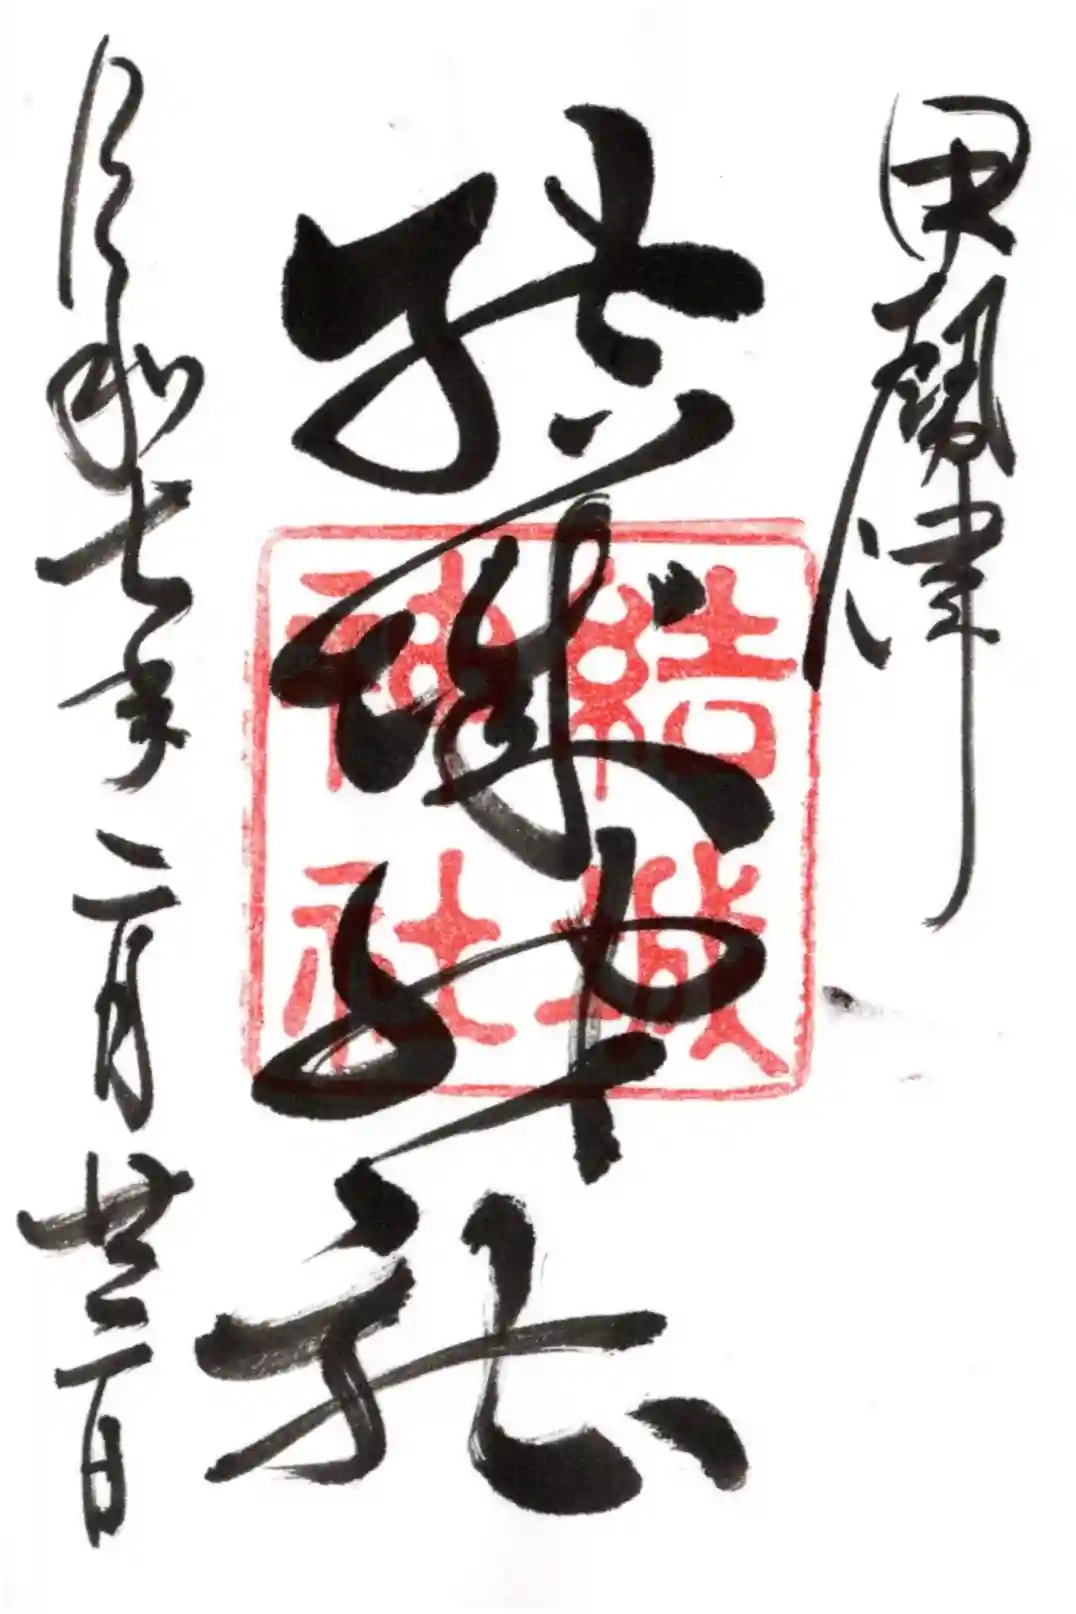 津
結城神社
結城
神社
令和七年二月廿三日